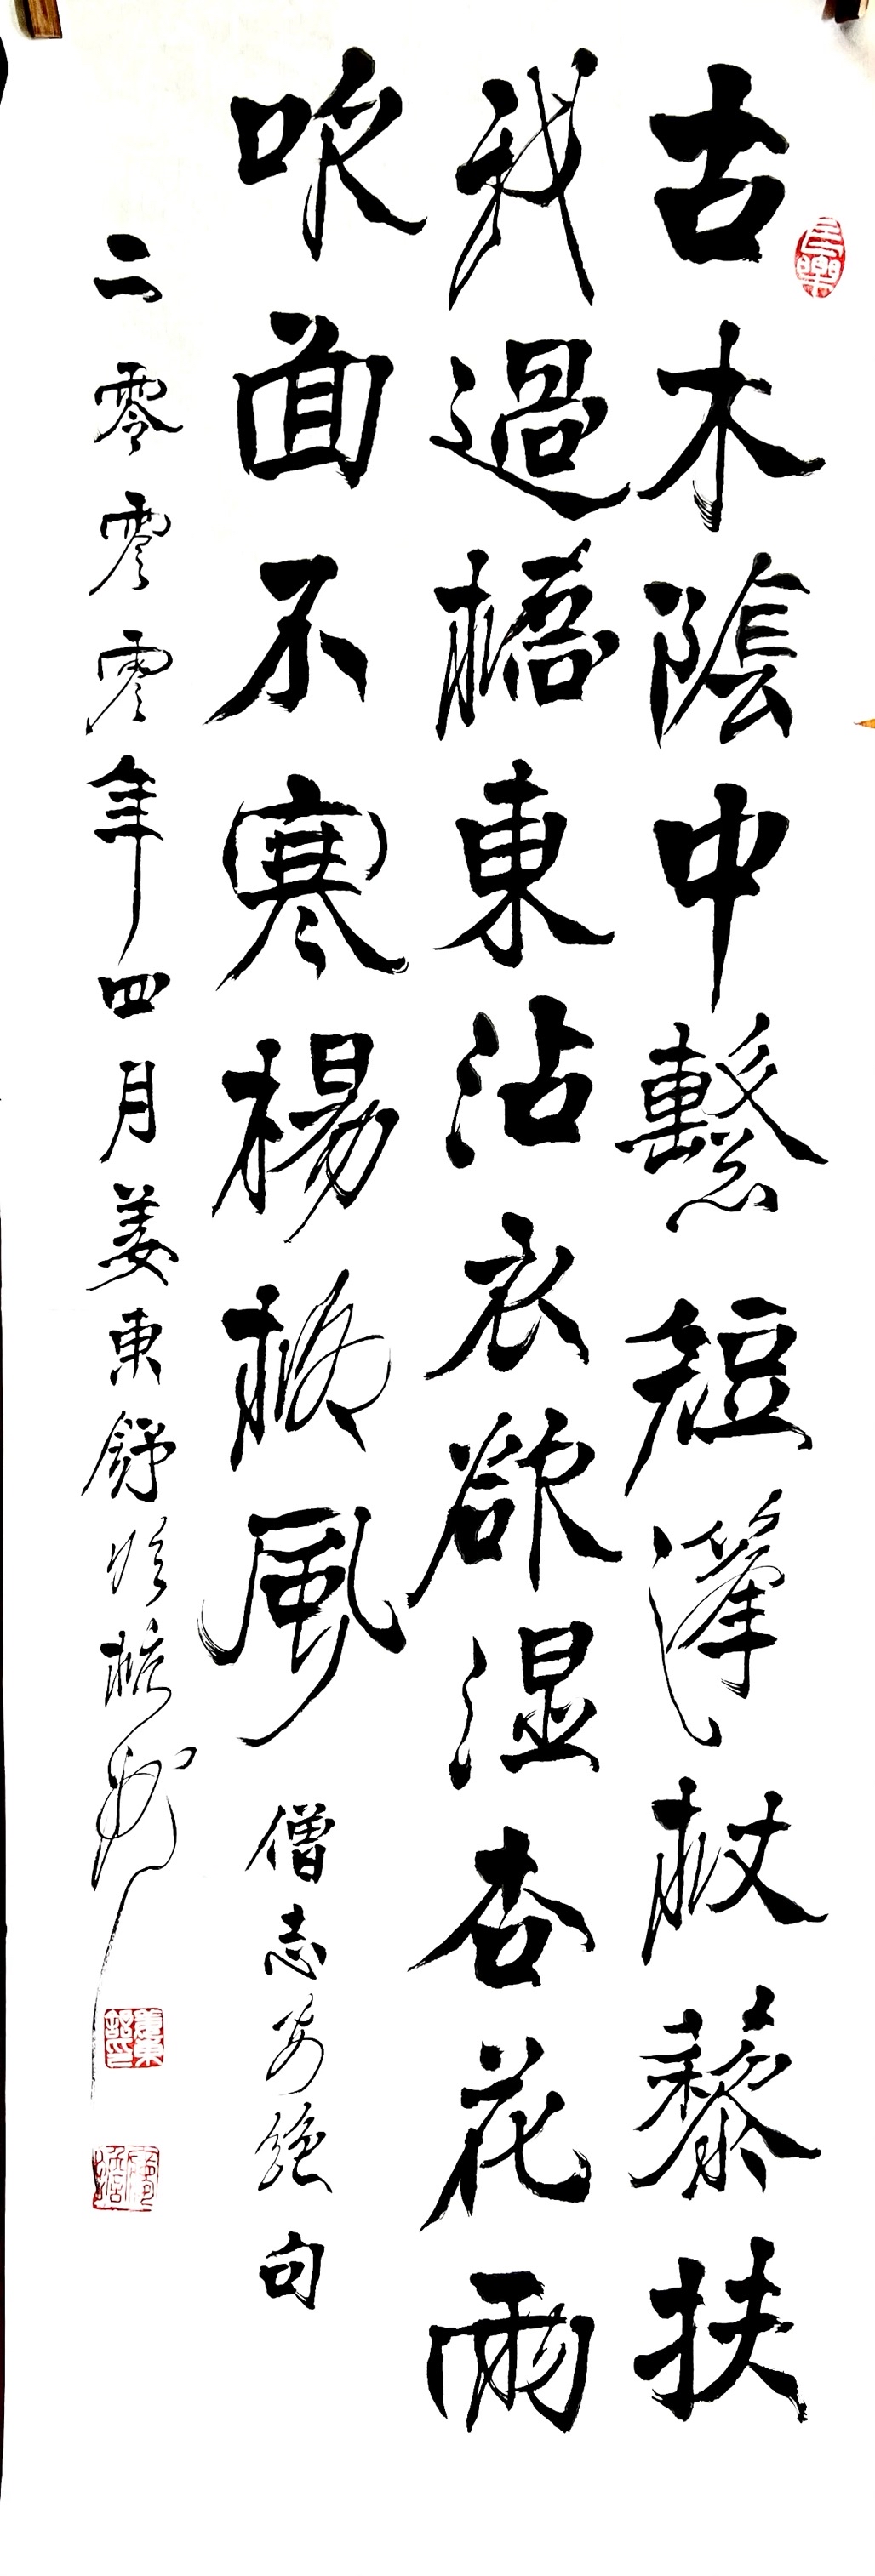 古木陰中繫短篷杖藜扶
我過橋東沾衣欲湿杏花雨
吹面不寒楊柳風
僧志安絕句
二零零零年四月姜東舒
姜東舒印